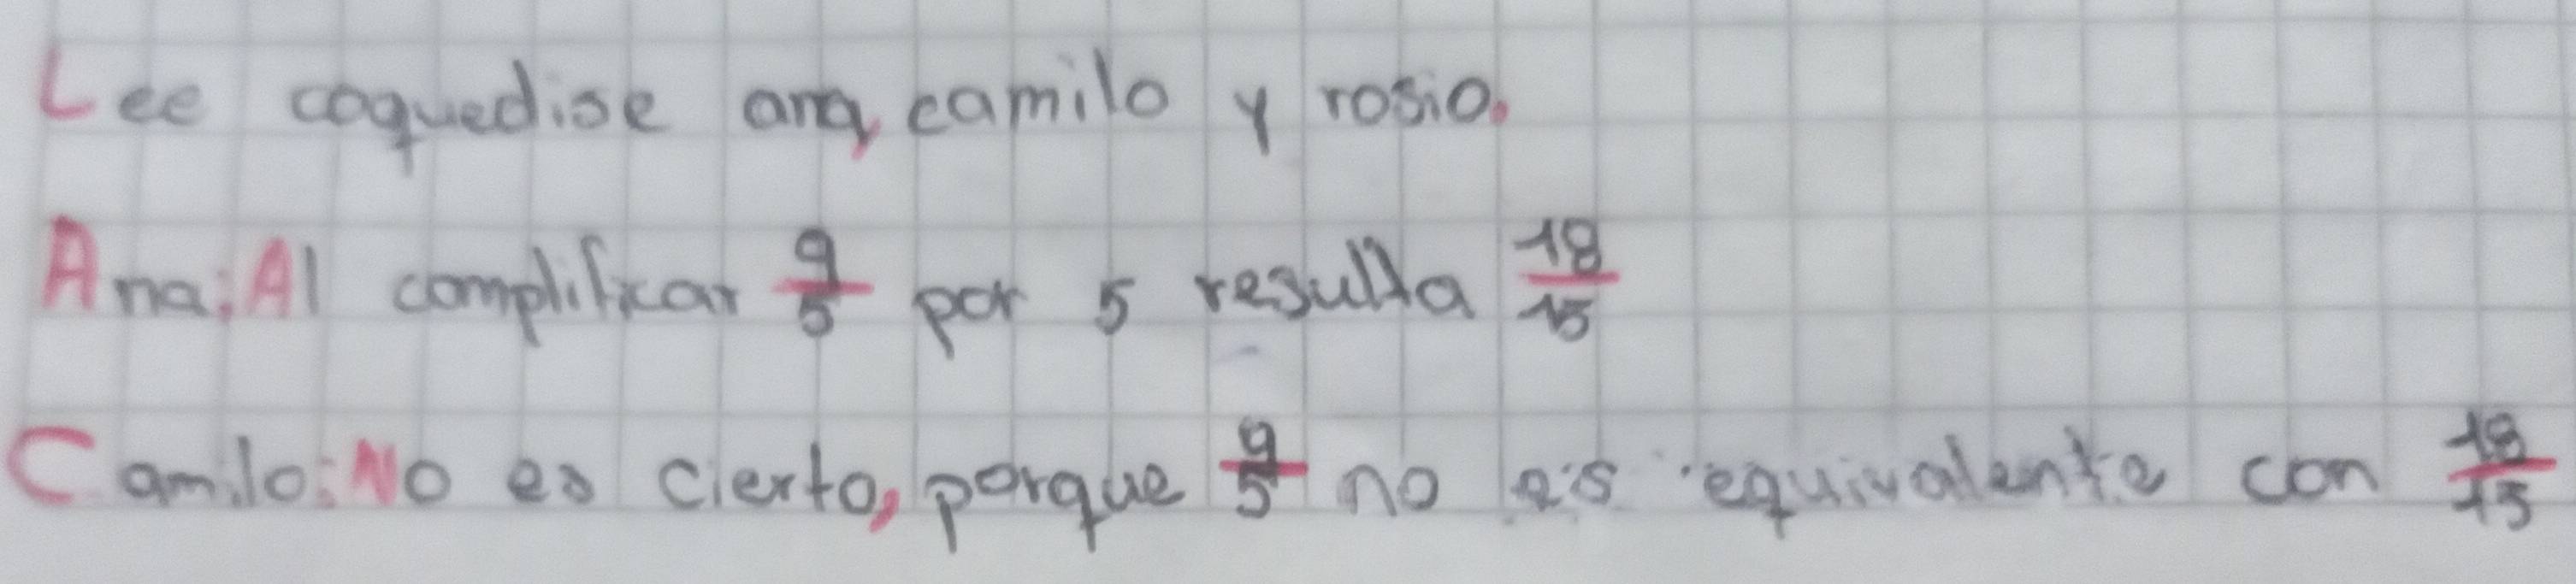 Lee coquedise ana, camilo y rosio.
Ana: Al complificar 9/5 por 5 resulta 18/15
Camilo: No es cierto, porque 9/5 no es equivalente con 18/15